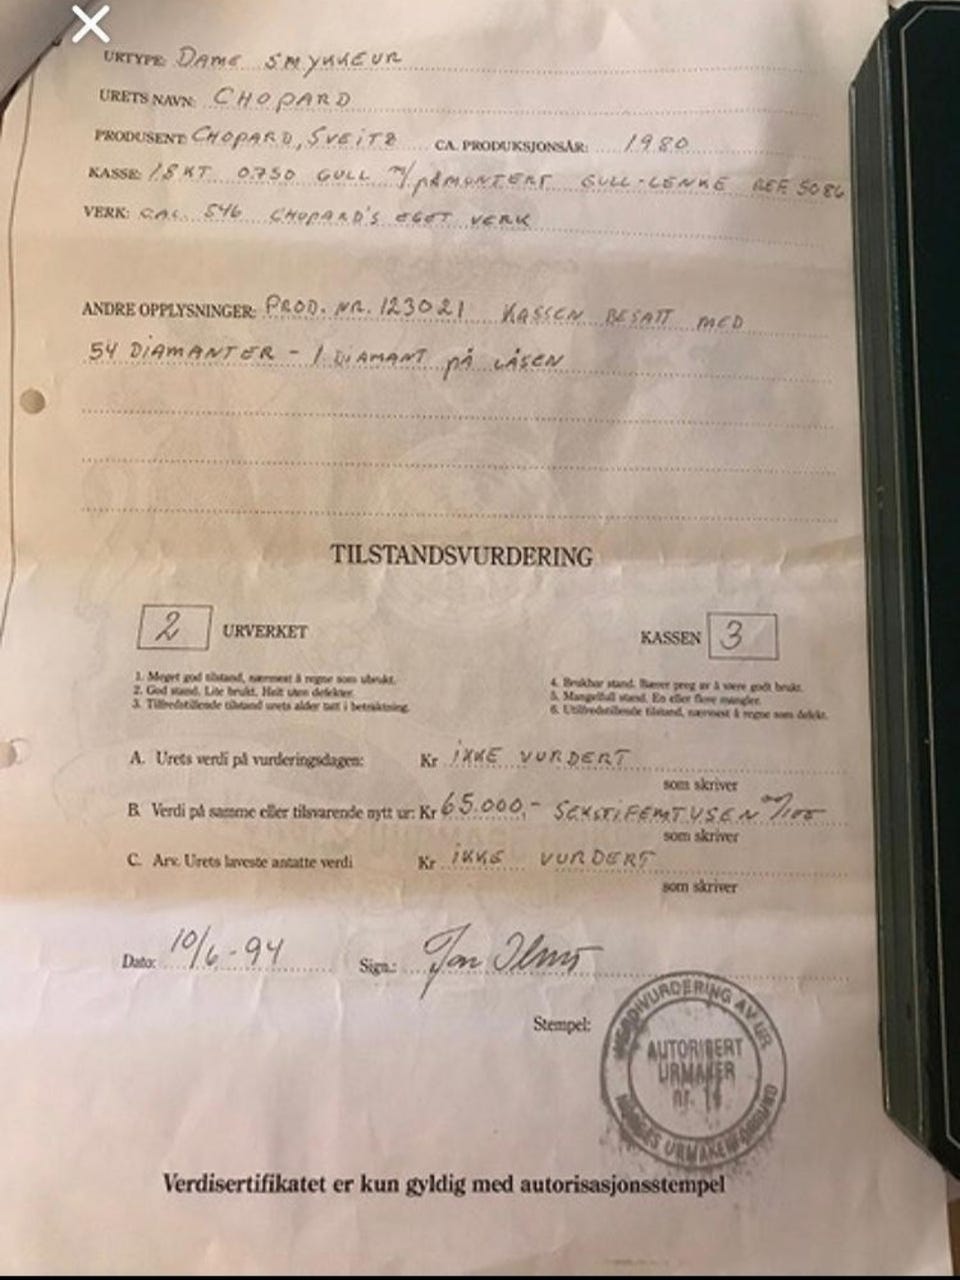 URTYPE: DAME SMYKKEUR
URETS NAVN: CHOPARD
PRODUSENT: CHOPARD, SVEITZ CA. PRODUKSJONSÅR: 1980
KASSE: 18 KT 0.750 GULL m/påmontert GULL-LENKE REF 5086
VERK: CAL. 546 CHOPARD'S EGET VERK
ANDRE OPPLYSNINGER: PROD. NR. 123021 KASSEN BESATT MED
54 DIAMANTER - 1 DIAMANT på LÅSEN
TILSTANDSVURDERING
2 URVERKET KASSEN 3
1. Meget god tilstand, nærmest å regne som ubrukt.
2. God stand. Lite brukt. Helt uten defekter.
3. Tilfredstillende tilstand urets alder tatt i betraktning.
4. Brukbar stand. Bærer preg av å være godt brukt.
5. Mangelfull stand. En eller flere mangler.
6. Utilfredstillende tilstand, nærmest å regne som defekt.
A. Urets verdi på vurderingsdagen: Kr IKKE VURDERT
som skriver
B. Verdi på samme eller tilsvarende nytt ur: Kr 65.000,- SEKSTIFEMTUSEN 00/100
som skriver
C. Arv. Urets laveste antatte verdi Kr IKKE VURDERT
som skriver
Dato: 10/6-94 Sign.: Jan
Stempel:
VERDIVURDERING AV UR
AUTORISERT
URMAKER
nr. 14
NORGES URMAKERFORBUND
Verdisertifikatet er kun gyldig med autorisasjonsstempel